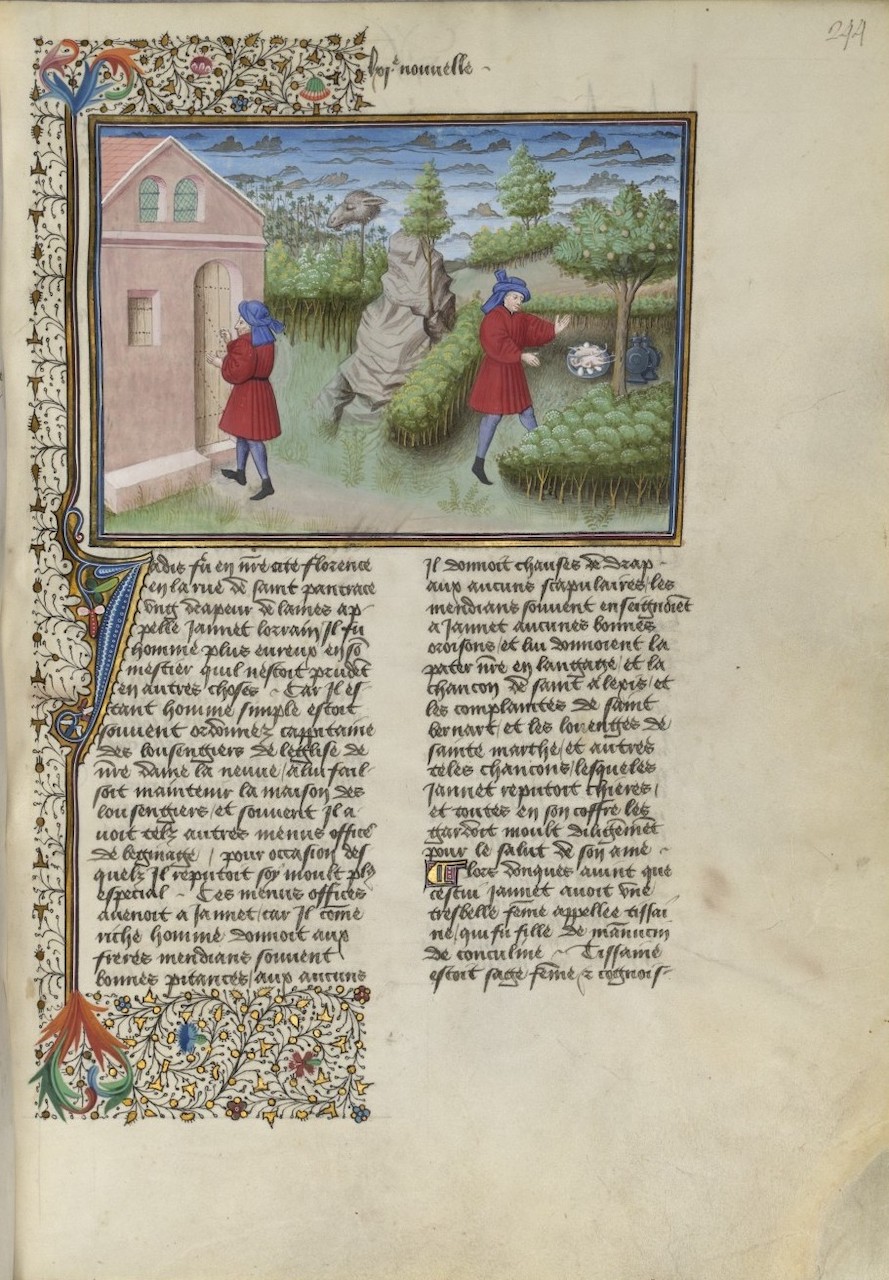 244
nouvelle
Jadis fu en nre cite florence
en la rue de saint pancrace
ung drapeur de laines ap-
pelle Jannet lorrain / Il fu
homme plus eureux en so
mestier quil nestoit prudet
en autres choses - Car il es-
tant homme simple estoit
souvent ordonnez cappitaine
des lousengiers de leglise de
nre dame la neuve / a lui fail-
loit maintenir la maison des
lousengiers / et souvent Il a-
voit telz autres menus office
de beginage / pour occasion des
quelz Il reputoit soy moult pls
especial - Ces menus offices
advenoit a Jannet / car Il come
riche homme donnoit aux
freres mendians souvent
bonnes pitances / aux aucuns
Il donnoit chausses de drap -
aux aucuns scapulaires / les
mendians souvent enseignoiet
a Jannet aucunes bonnes
oroisons / et lui donnoient la
pater nre en langage / et la
chancon de saint alexis / et
les complaintes de saint
bernart / et les louenges de
sainte marthe / et autres
teles chancons / lesqueles
Jannet reputoit chieres /
et toutes en son coffre les
gardoit moult diligemet
pour le salut de son ame -
Alors donques avint que
cestui Jannet avoit une
tresbelle feme appellee tissai-
ne / qui fu fille de manucin
de conculine - Tissaine
estoit sage feme / et cognois-